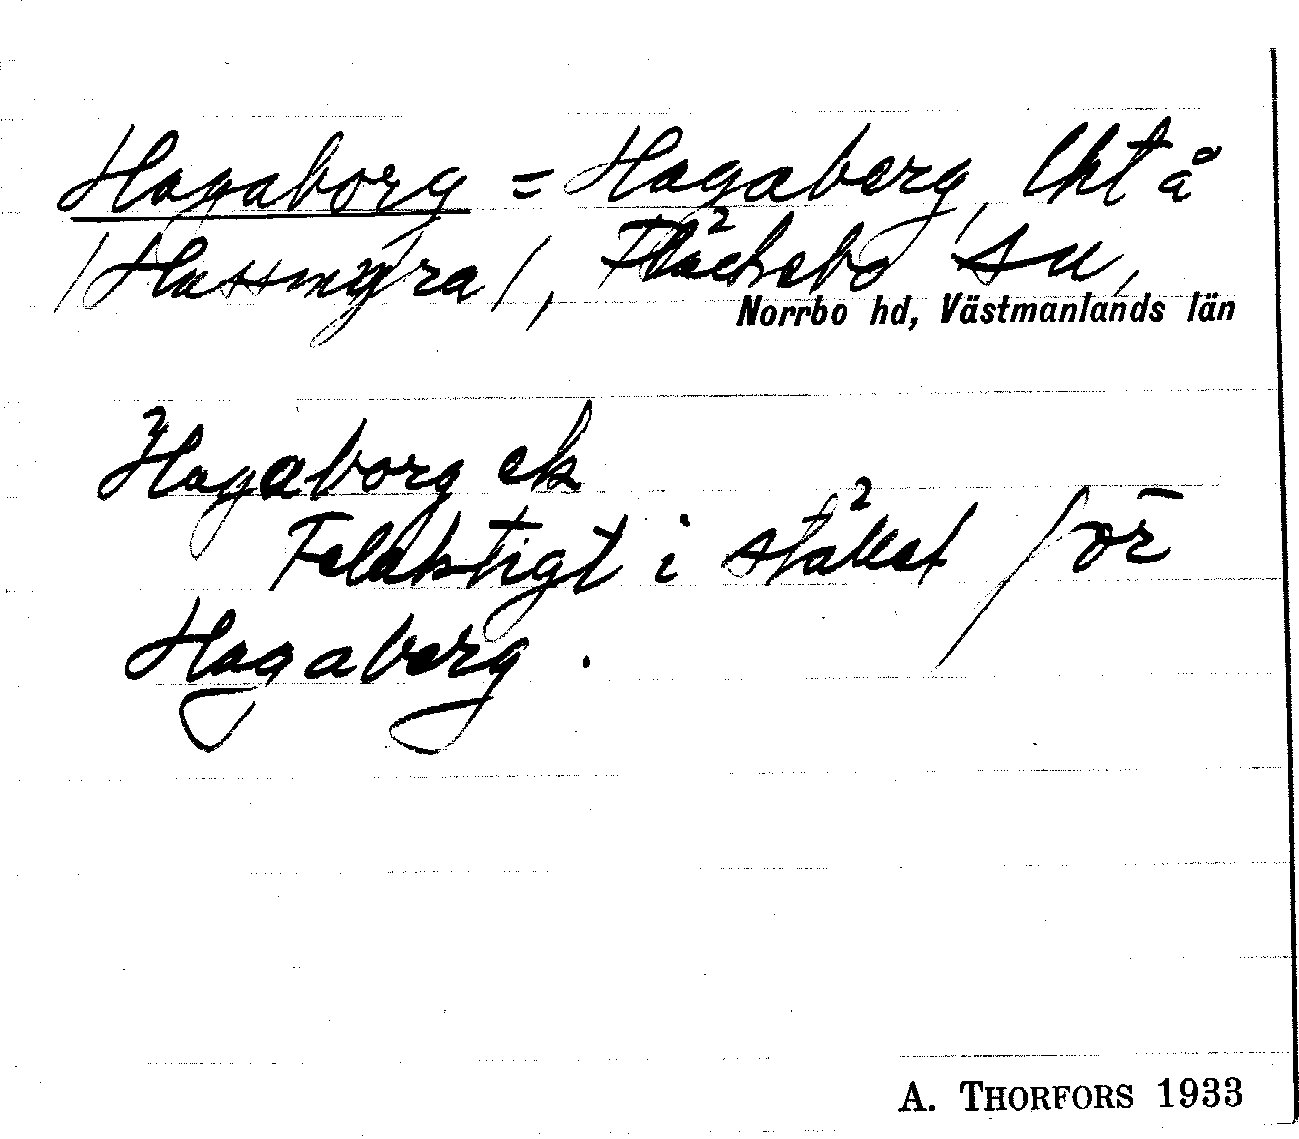 Hagaborg = Hagaberg, lht å
/Hussmyra/, Fläckebo sn,
Norrbo hd, Västmanlands län
Hagaborg ek
Felaktigt i stället för
Hagaberg.
A. THORFORS 1933